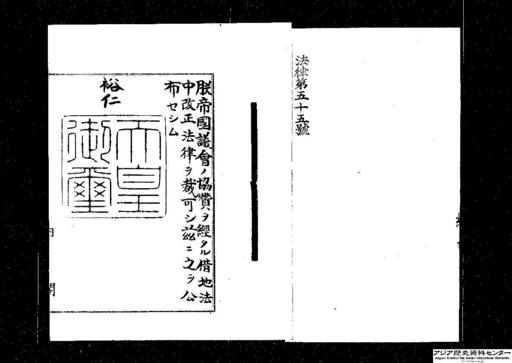 法律第五十五號
朕帝國議會ノ協賛ヲ經タル借地法
中改正法律ヲ裁可シ茲ニ之ヲ公
布セシム
裕仁
天皇
御璽
内閣
アジア歴史資料センター
Japan Center for Asian Historical Records